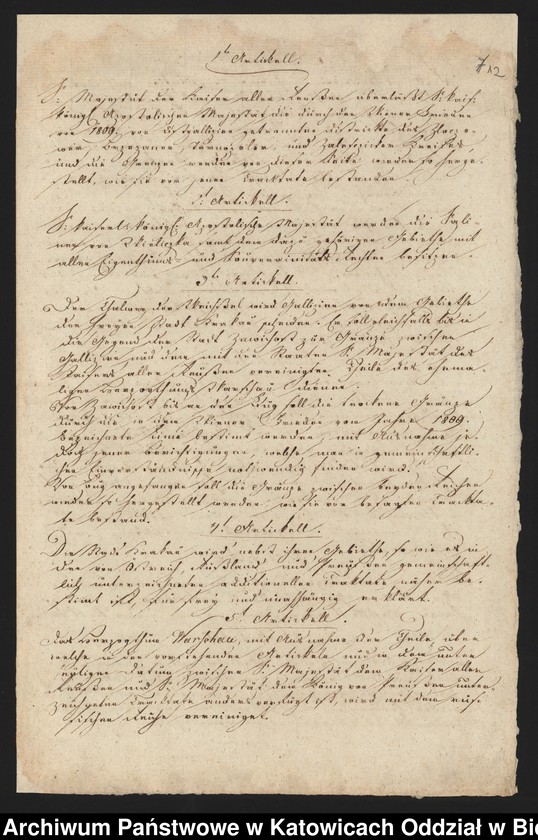 1te Artickell.
712
Sr Majestät der Kaiser aller Reußen überläßt Sr kais.
königl. Apostolischen Majestät die durch den Wiener Frieden
von 1809. von Ostgallizien getrennten Distrikte des Zloczo-
wer, Brzezaner, Turnopoler, und Zalesczicker Kreises,
und die Grenzen werden von dieser Seite wieder so herge-
stellt, wie sie vor jenem Tracktate bestanden.
2t. Artickell.
Sr kaiserl. königl. Apostolische Majestät werden die Sali-
nen von Wieliczka, samt dem dazu gehörigen Gebiethe mit
allen Eigenthums- und Souverainitäts Rechten besitzen.
3te Artickell.
Der Thalweg der Weichsel wird Gallizien von dem Gebiethe
der freyen Stadt Krakau scheiden. Er soll gleichfalls bis in
die Gegend der Stadt Zawichost zur Gränze zwischen
Gallizien und dem mit den Staaten Sr Majestät des
Kaisers aller Reußen vereinigten Theile des ehema-
ligen Herzogthums Warschau dienen.
Von Zawichost bis an den Bug soll die trockene Gränze
durch die in dem Wiener Frieden vom Jahre 1809.
bezeichnete Linie bestimt werden, mit Ausnahme je-
doch jener Berichtigungen, welche man in gemeinschaftli-
chen Einverständnisse nothwendig finden wird.
Vom Bug angefangen soll die Gränze zwischen beyden Reichen
wieder so hergestellt werden, wie sie vor besagten Tracta-
te bestand.
4t. Artickell.
Die Stadt Krakau wird nebst ihrem Gebiethe, so wie es in
den von Östreich, Rußland und Preußen gemeinschaft-
lich unterzeichneten additionellen Tracktate näher be-
stimt ist, für frey und unabhängig erklärt.
5t. Artickell.
Das Herzogthum Warschau, mit Ausnahme der Theile, über
welche in den vorstehenden Artickeln und in dem unter
heutigen Datum zwischen Sr Majestät dem Kaiser aller
Reußen und Sr Majestät dem König von Preußen unter-
zeichneten Tracktate anders verfügt ist, wird mit dem rus-
sischen Reiche vereiniget.
Archiwum Państwowe w Katowicach Oddział w Bie